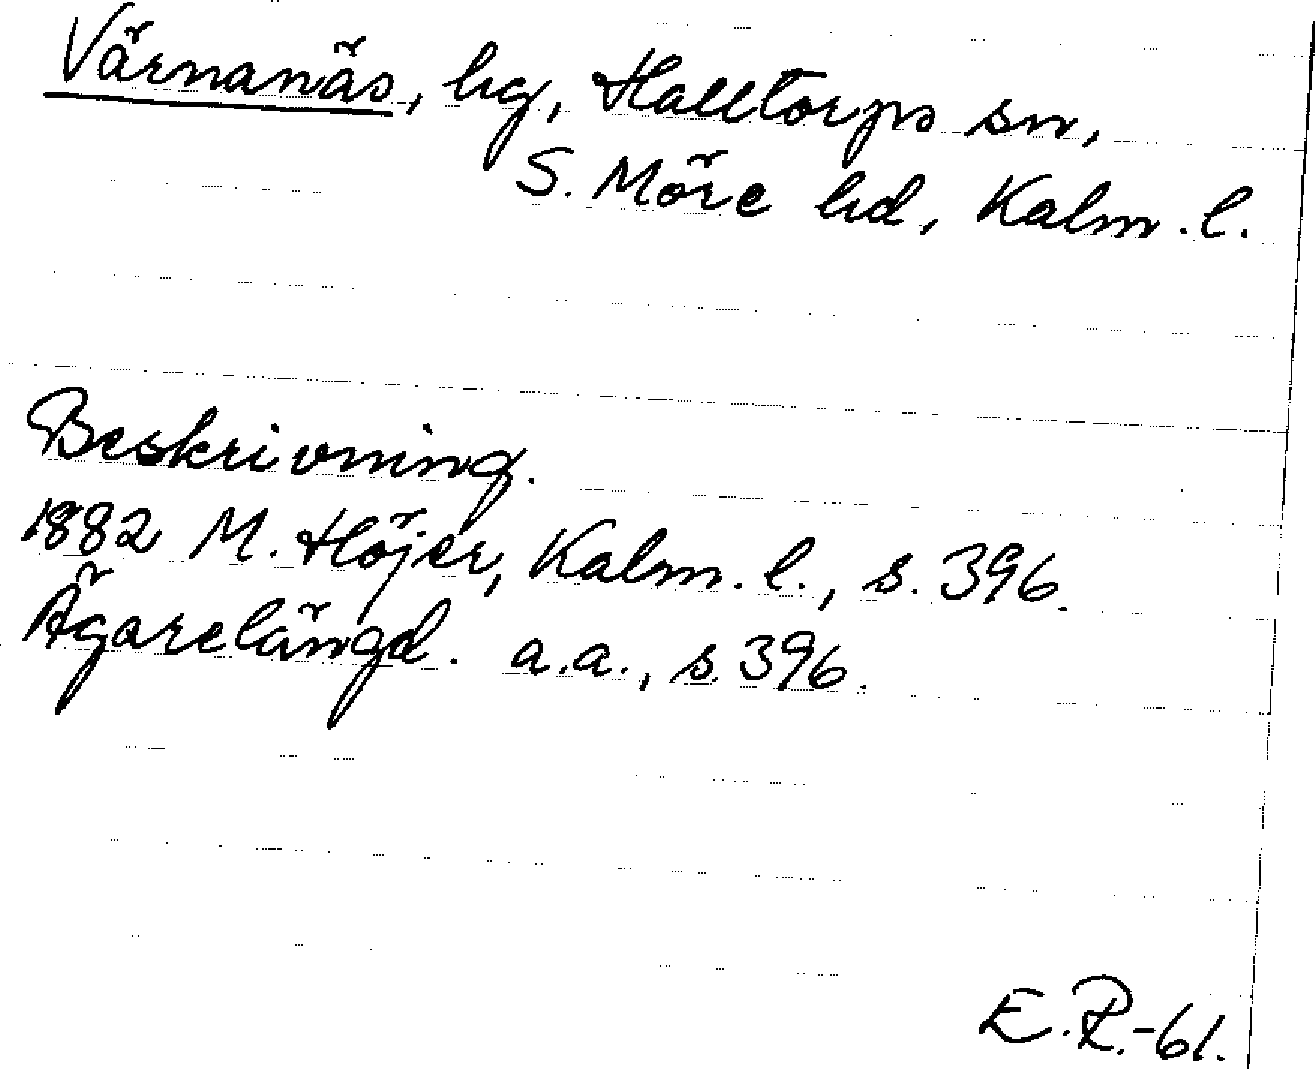 Värnanäs, hg, Halltorps sn,
S. Möre hd, Kalm. l.
Beskrivning.
1882 M. Höjer, Kalm. l., s. 396.
Ägarelängd. a.a., s. 396.
E.R.-61.